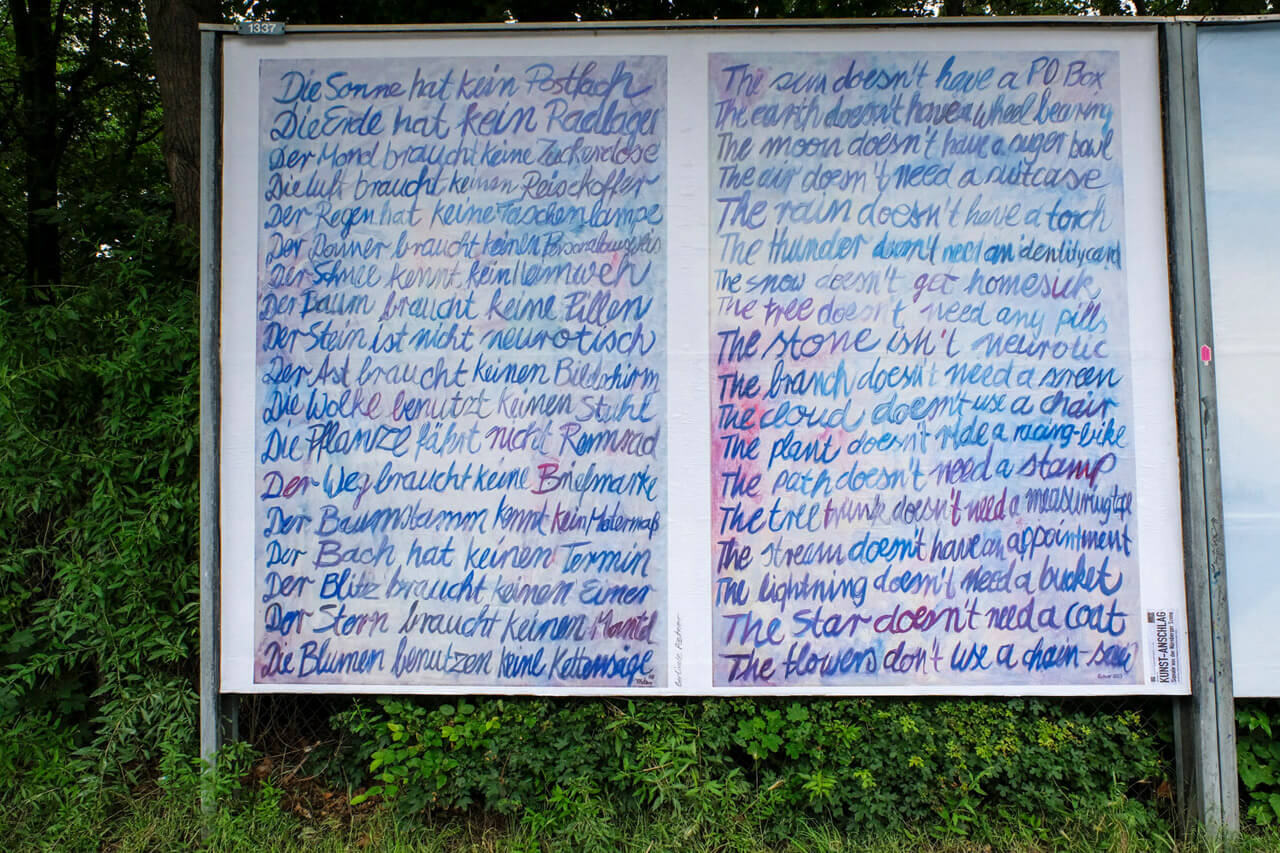 1337
Die Sonne hat kein Postfach
Die Erde hat kein Radlager
Der Mond braucht keine Zuckerdose
Die luft braucht keinen Reisekoffer
Der Regen hat keine Taschenlampe
Der Donner braucht keinen Personalausweis
Der Schnee kennt kein Heimweh
Der Baum braucht keine Pillen
Der Stein ist nicht neurotisch
Der Ast braucht keinen Bildschirm
Die Wolke benutzt keinen Stuhl
Die Pflanze fährt nicht Rennrad
Der Weg braucht keine Briefmarke
Der Baumstamm kennt kein Metermaß
Der Bach hat keinen Termin
Der Blitz braucht keinen Eimer
Der Stern braucht keinen Mantel
Die Blumen benutzen keine Kettensäge
The sun doesn't have a PO Box
The earth doesn't have a wheel bearing
The moon doesn't have a suger bowl
The air doesn't need a suitcase
The rain doesn't have a torch
The thunder doesn't need an identitycard
The snow doesn't get homesick
The tree doesn't need any pills
The stone isn't neurotic
The branch doesn't need a screen
The cloud doesn't use a chair
The plant doesn't ride a racing-bike
The path doesn't need a stamp
The tree trunk doesn't need a measuringtape
The stream doesn't have an appointment
The lightning doesn't need a bucket
The Star doesn't need a coat
The flowers don't use a chain-saw
KUNST-ANSCHLAG
Signale aus der Nürnberger Szene